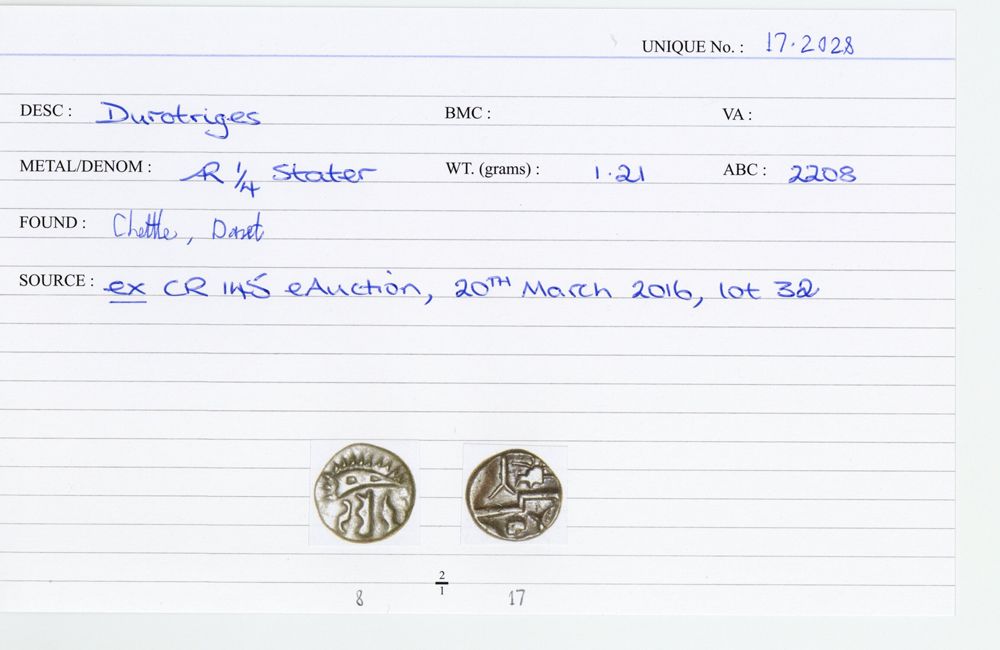 UNIQUE No. : 17.2028
DESC : Durotriges BMC : VA :
METAL/DENOM : AR 1/4 Stater WT. (grams) : 1.21 ABC : 2208
FOUND : Chettle, Dorset
SOURCE : ex CR 145 eAuction, 20TH March 2016, lot 32
2/1
8 17